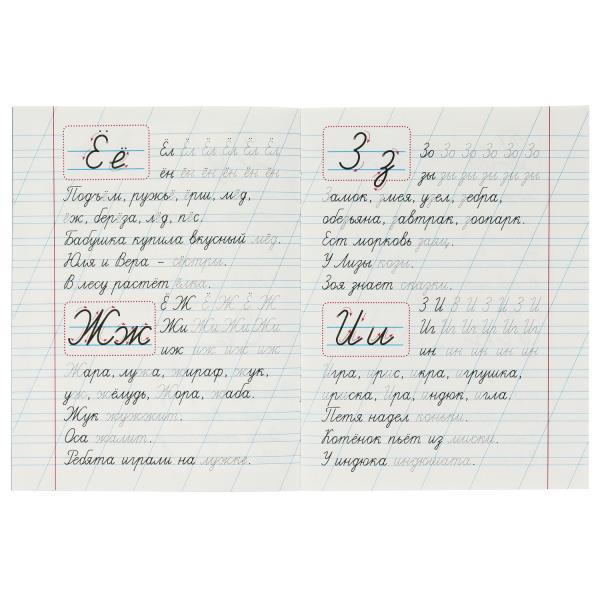 Ёё
Ёл Ёл Ёл Ёл Ёл Ёл
ён ён ён ён ён ён
Подъём, ружьё, ёрш, мёд,
ёж, берёза, лёд, пёс.
Бабушка купила вкусный мёд.
Юля и Вера – сёстры.
В лесу растёт ёлка.
Жж
Ё Ж Ё Ж Ё Ж
Жи Жи Жи Жи
иж иж иж иж
Жара, лужа, жираф, жук,
уж, жёлудь, Жора, жаба.
Жук жужжит.
Оса жалит.
Ребята играли на лужке.
Зз
Зо Зо Зо Зо Зо Зо
зы зы зы зы зы зы
Замок, змея, узел, зебра,
обезьяна, завтрак, зоопарк.
Ест морковь заяц.
У Лизы козы.
Зоя знает сказки.
Ии
З И З И З И З И
Иг Иг Иг Иг Иг Иг
ин ин ин ин ин ин
Игра, ирис, икра, игрушка,
ириска, Ира, индюк, игла.
Петя надел коньки.
Котёнок пьёт из миски.
У индюка индюшата.